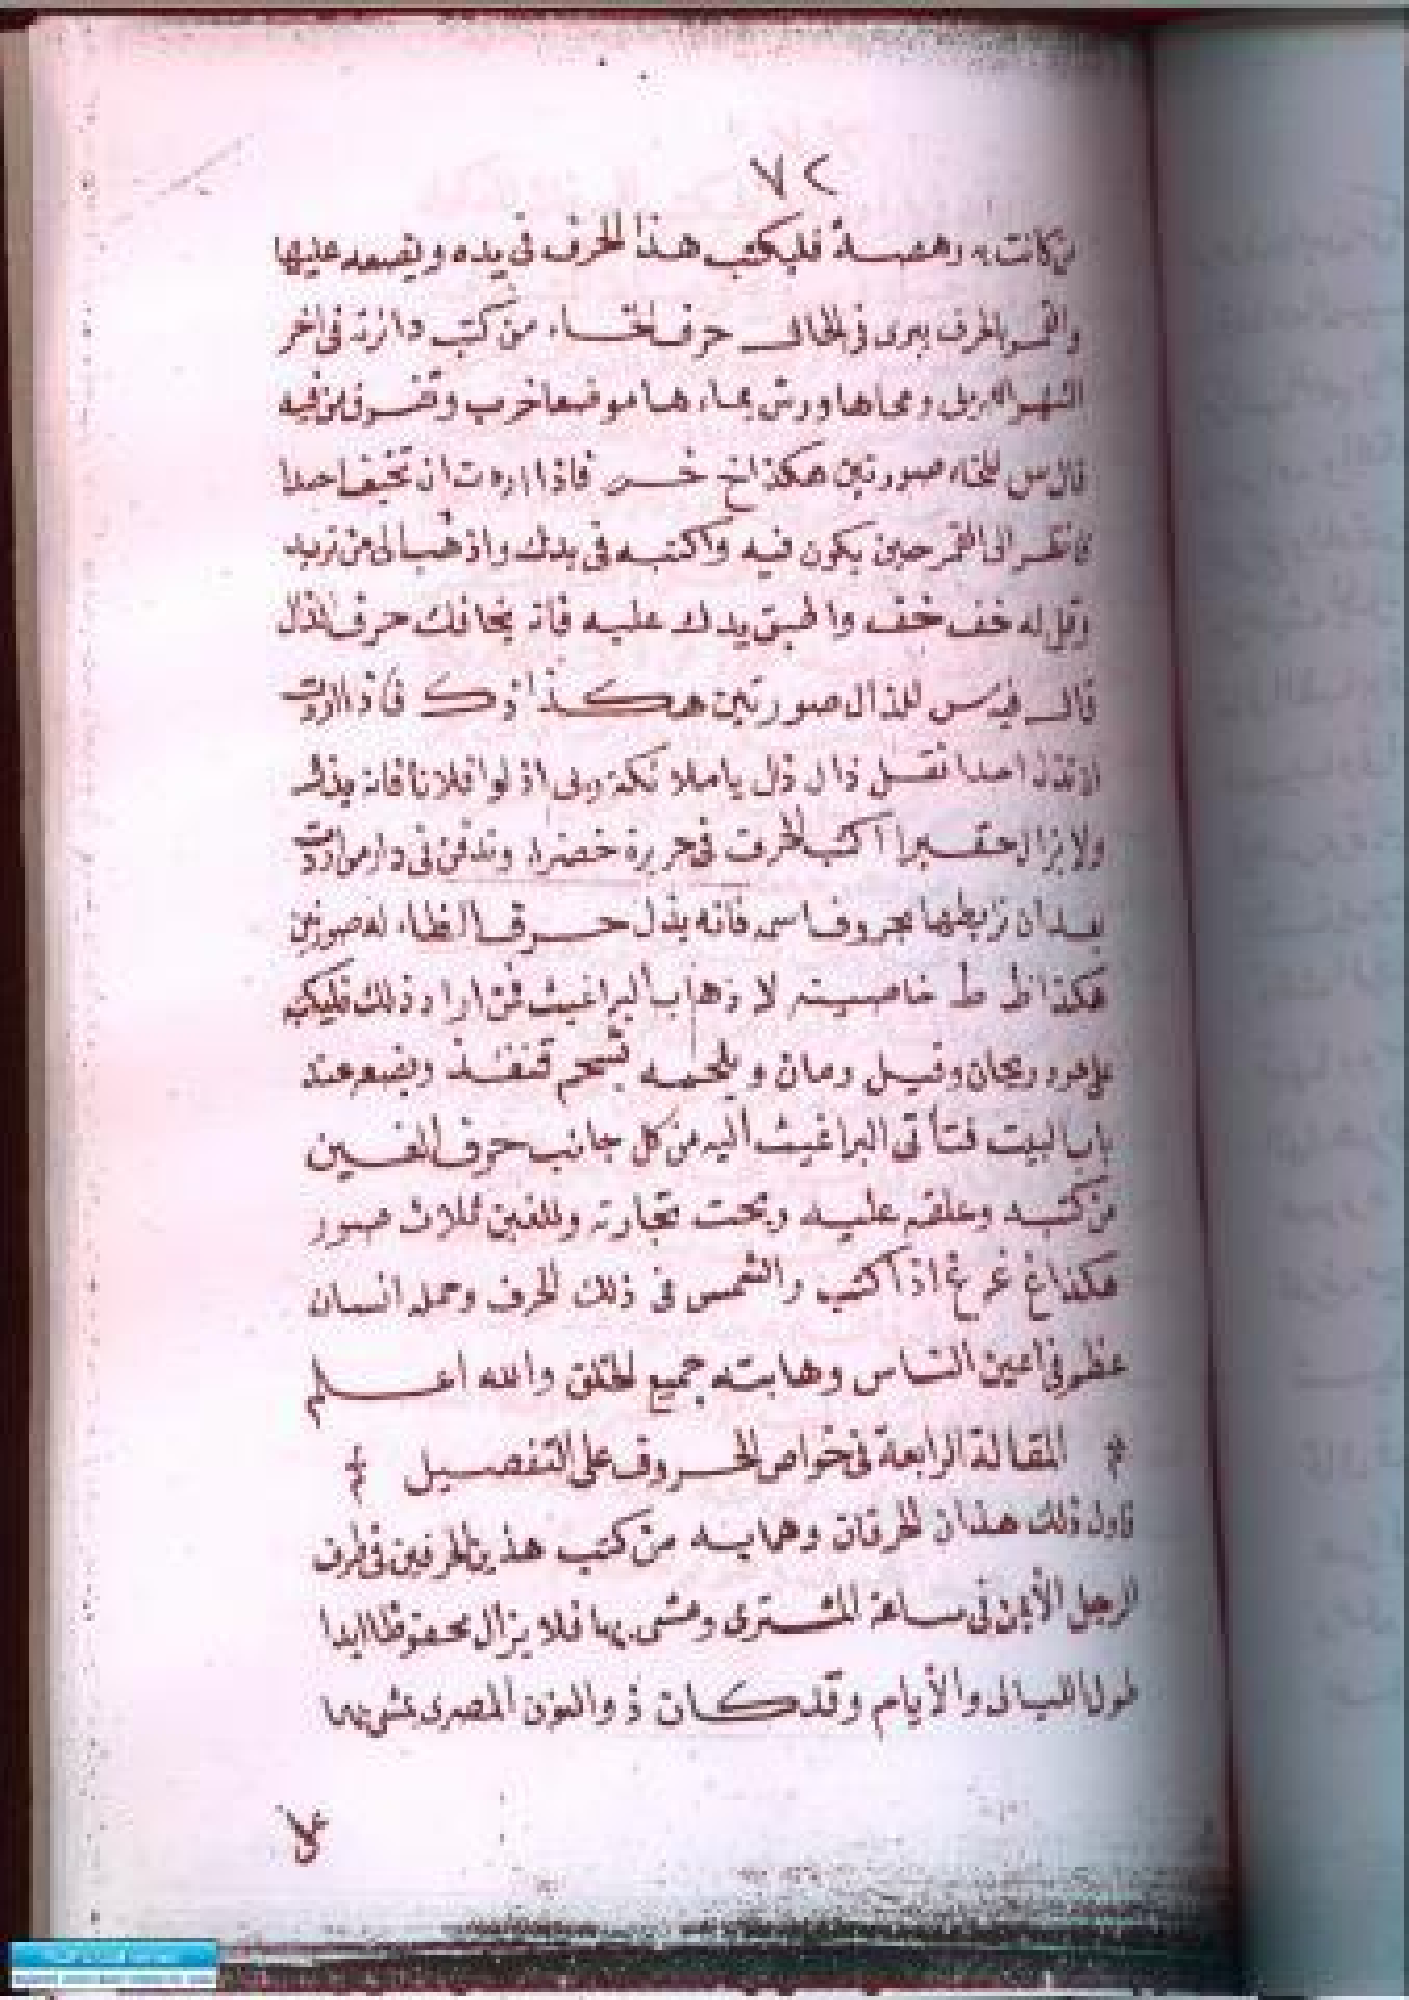 ٧٢
من كانت به رهصة فليكتب هذا الحرف في يده ويضعه عليها
والقمر بالحرف يبرى في الحال حرف الخاء من كتب دائرته في اخر
الشهر ومحاها ورش بماءها موضعا خرب وتفرق من فيه
قال س للخاء صورتين هكذا خ خـ فاذا اردت ان تخيف احدا
فانظر الى القمر حين يكون فيه واكتبه في يدك واذهب الى من تريد
وقل له خف خف واطبق يدك عليه فانه يخافك حرف الذال
قال س للذال صورتين هكذا ذ فاذا اردت
ان تذل احدا فقل ذال ذل يا ملائكة ربي اذلوا فلانا فانه يذل
ولا يزال حقيرا اكتب الحرف في حريرة خضراء وتدفن في دار من اردت
بعد ان تربطها بحروف اسمه فانه يذل حرف الظاء له صورتين
هكذا ظ ط خاصيته لا ذهاب البراغيث فمن اراد ذلك فليكتب
على رمان ويلحمه بشحم قنفذ ويضعه عند
باب البيت فتأتي البراغيث اليه من كل جانب حرف الغين
من كتبه وعلقه عليه ربحت تجارته وللغين ثلاث صور
هكذا غ غـ غ اذا كتب والشمس في ذلك الحرف وحمله انسان
عظم في اعين الناس وهابته جميع الخلق والله اعلم
المقالة الرابعة في خواص الحروف على التفصيل
فاول ذلك هذان الحرفان وهما يـه من كتب هذين الحرفين في طرف
الرجل الأيمن في ساعة المشترى ومشى بها فلا يزال محفوظا ابدا
طول الليالي والأيام وقد كان ذو النون المصرى يمشي بهما
على